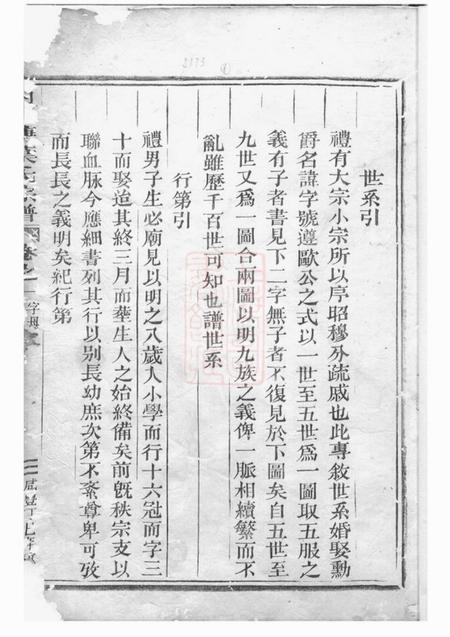 2173
世系引
禮有大宗小宗所以序昭穆別疏戚也此專敘世系婚娶勳
爵名諱字號遵歐公之式以一世至五世為一圖取五服之
義有子者書見下二字無子者不復見於下圖矣自五世至
九世又爲一圖合兩圖以明九族之義俾一脈相續繁而不
亂雖歷千百世可知也譜世系
行第引
禮男子生必廟見以明之八歲入小學而行十六冠而字三
十而娶迨其終三月而葬生人之始終備矣前旣秩宗支以
聯血脉今應細書列其行以别長幼庶次第不紊尊卑可攷
而長長之義明矣紀行第
宗譜
卷之一